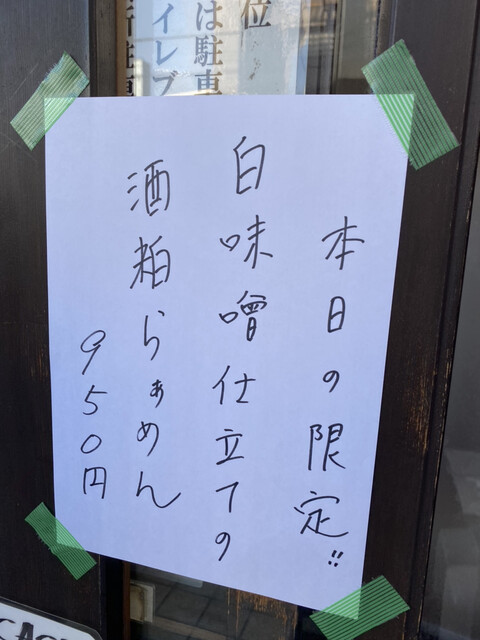 本日の限定!!
白味噌仕立ての
酒粕らぁめん
950円
位
は駐車
イレブ